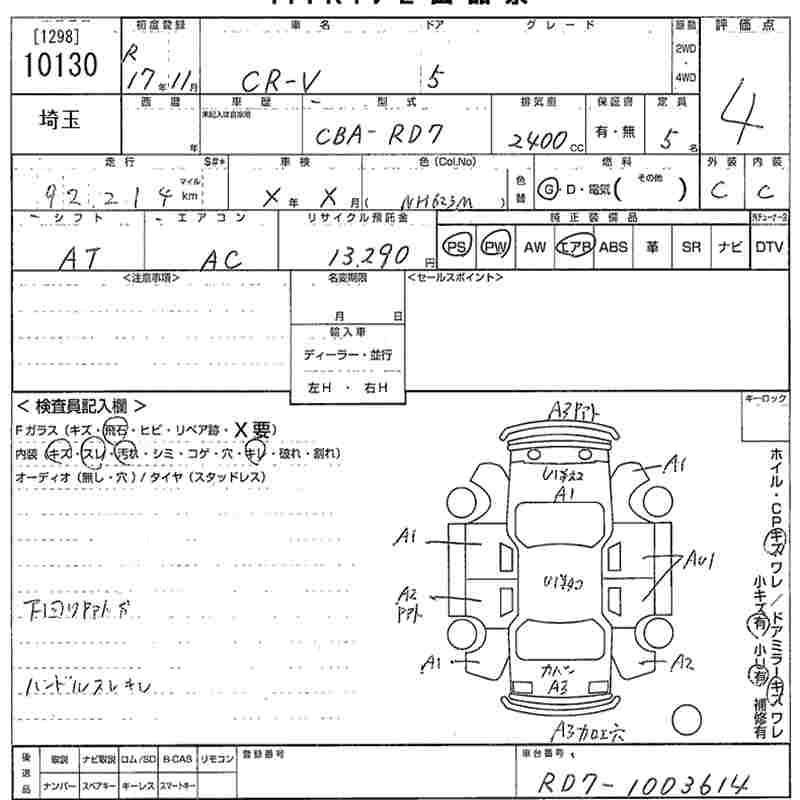 [1298]
10130
初度登録
R
17年11月
車名
CR-V
ドア
5
グレード
駆動
2WD
・
4WD
評価点
4
埼玉
西暦
年
車歴
未記入は自家用
型式
CBA-RD7
排気量
2400cc
保証書
有・無
定員
5名
走行
S#*
92,214
マイル
km
車検
X年X月
色(Col.No)
(NH623M)
色替
燃料
G・D・電気(その他)
外装
C
内装
C
シフト
AT
エアコン
AC
リサイクル預託金
13,290円
純正装備品
PS
PW
AW
エアB
ABS
革
SR
ナビ
DTV
<注意事項>
名変期限
月 日
輸入車
ディーラー・並行
左H・右H
<セールスポイント>
<検査員記入欄>
Fガラス(キズ・飛石・ヒビ・リペア跡・X要)
内装(キズ・スレ・汚れ・シミ・コゲ・穴・キレ・破れ・割れ)
オーディオ(無し・穴)/タイヤ(スタッドレス)
ハンドルスレキレ
キーロック
ホイル・CPキズワレ/ドアミラーキズワレ
小キズ有 小U有 補修有
A3
U1
A1
A1
A1
AU1
U1
A2
A1
カバン
A3
A2
A3カロエ穴
後送品
取説
ナビ取説
ロム/SD
B-CAS
リモコン
ナンバー
スペアキー
キーレス
スマートキー
登録番号
車台番号
RD7-1003614